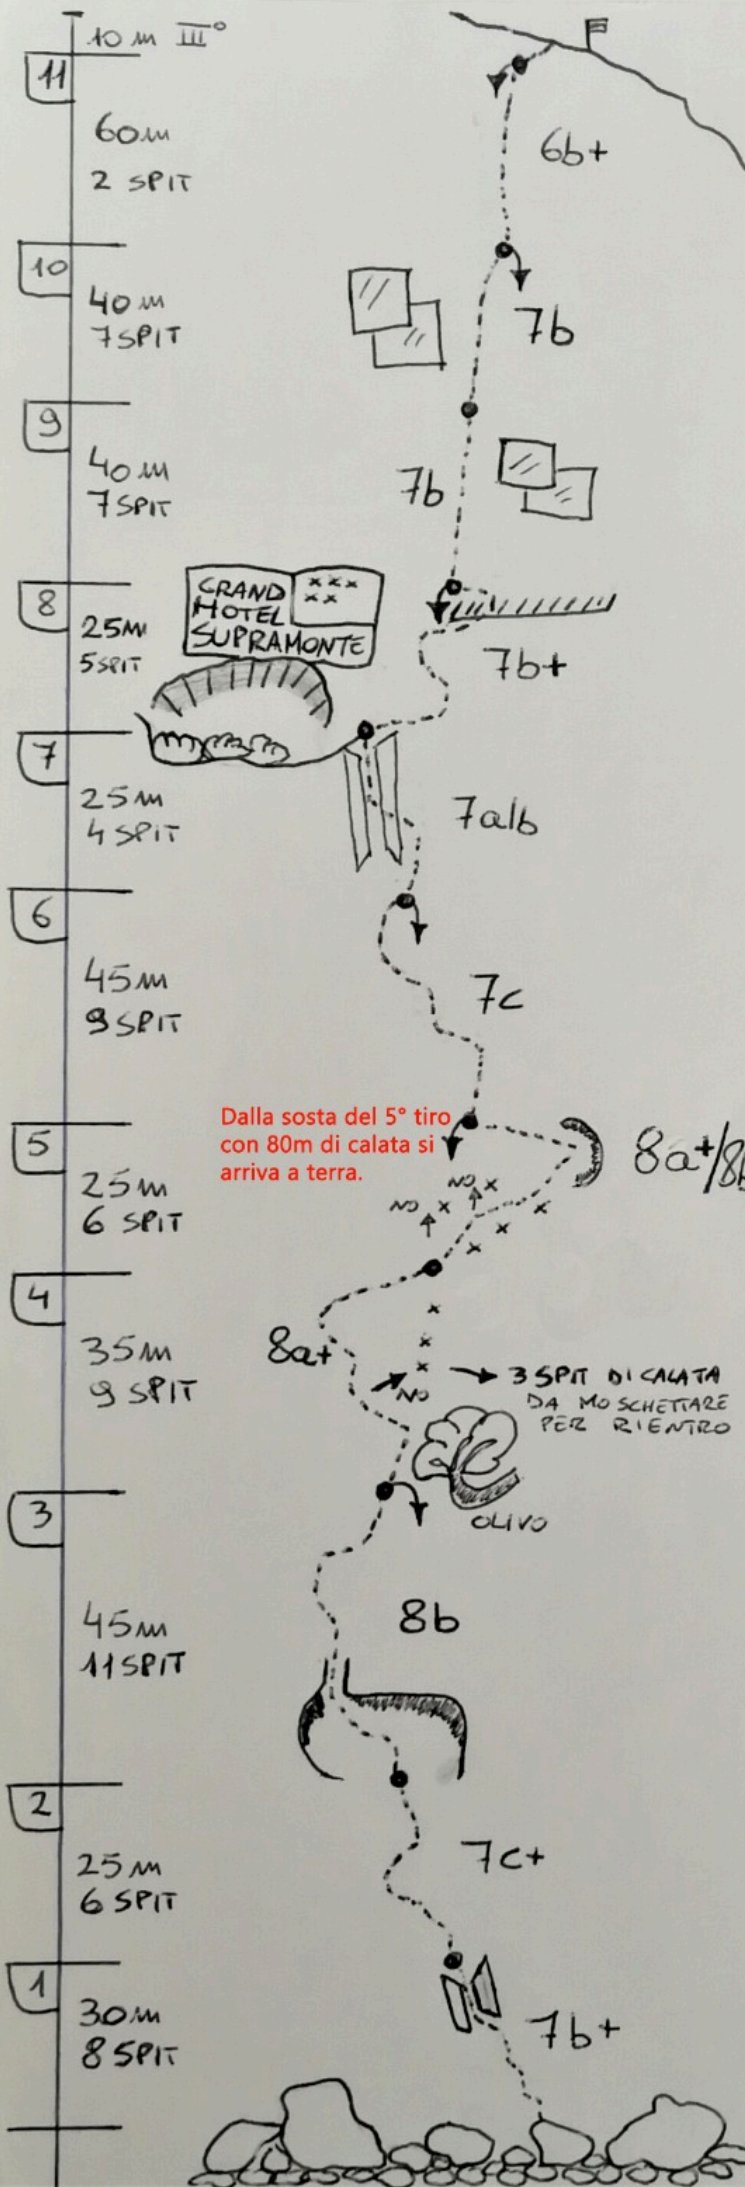 10m III°
11
60m
2 SPIT
6b+
10
40m
7SPIT
7b
9
40m
7SPIT
7b
8
25m
5SPIT
GRAND
HOTEL
SUPRAMONTE
7b+
7
25m
4 SPIT
7a/b
6
45m
9 SPIT
7c
Dalla sosta del 5° tiro
con 80m di calata si
arriva a terra.
5
25m
6 SPIT
8a+/8b
NO
NO
4
35m
9 SPIT
8a+
NO
3 SPIT DI CALATA
DA MOSCHETTARE
PER RIENTRO
OLIVO
3
45m
11SPIT
8b
2
25m
6 SPIT
7c+
1
30m
8 SPIT
7b+